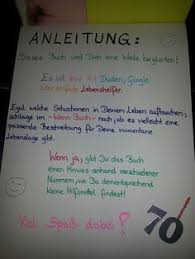 ANLEITUNG:
Dieses Buch wird Dich eine Weile begleiten!
Es ist eine Art Duden, Google
oder einfach Lebenshelfer.
Egal welche Situationen in Deinem Leben auftauchen,
schlage im "Wenn Buch" nach, ob es vielleicht eine
passende Beschreibung für Deine momentane
Lebenslage gibt.
Wenn ja, gibt Dir das Buch
einen Hinweis anhand verschiedener
Nummern, wo Du dementsprechend
kleine Hilfsmittel findest!
Viel Spaß dabei!
70